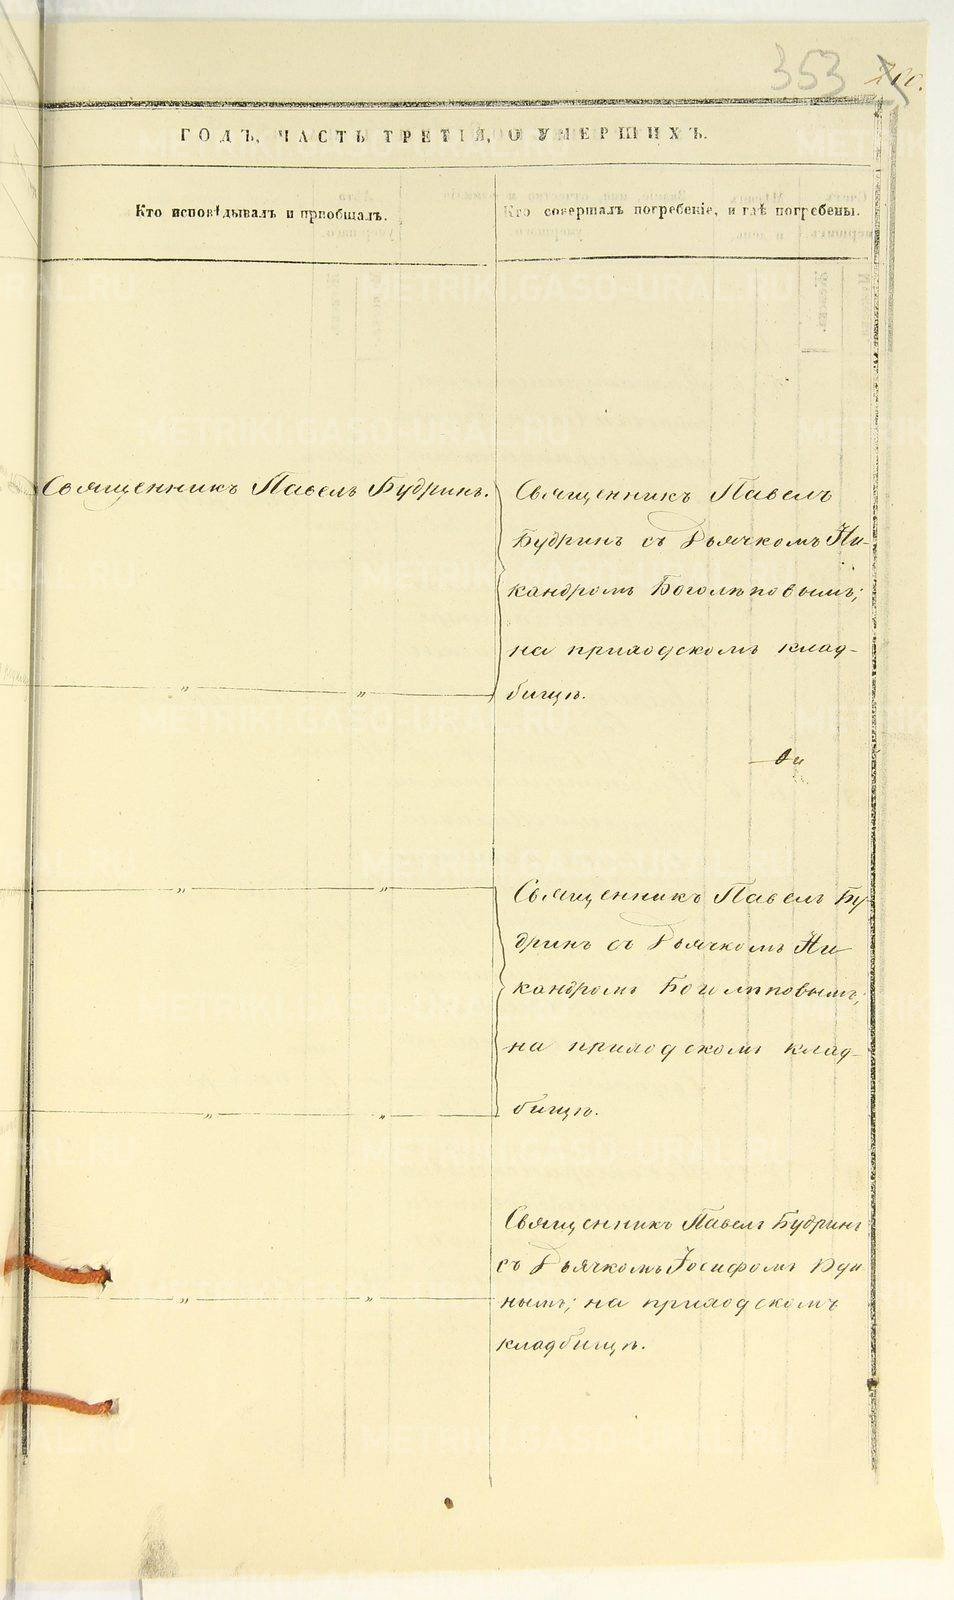 353
ГОДЪ, ЧАСТЬ ТРЕТІЯ, О УМЕРШИХЪ.
Кто исповѣдывалъ и пріобщалъ.
Кто совершалъ погребеніе, и гдѣ погребены.
Священникъ Павелъ Будринъ.
Священникъ Павелъ
Будринъ съ Дьячкомъ Ни-
кандромъ Боголѣповымъ;
на приходскомъ клад-
бищѣ.
Священникъ Павелъ Бу-
дринъ съ Дьячкомъ Ни
кандромъ Боголѣповымъ;
на приходскомъ клад-
бищѣ.
Священникъ Павелъ Будринъ
съ Дьячкомъ Іосифомъ
нымъ; на приходскомъ
кладбищѣ.
METRIKI.GASO-URAL.RU